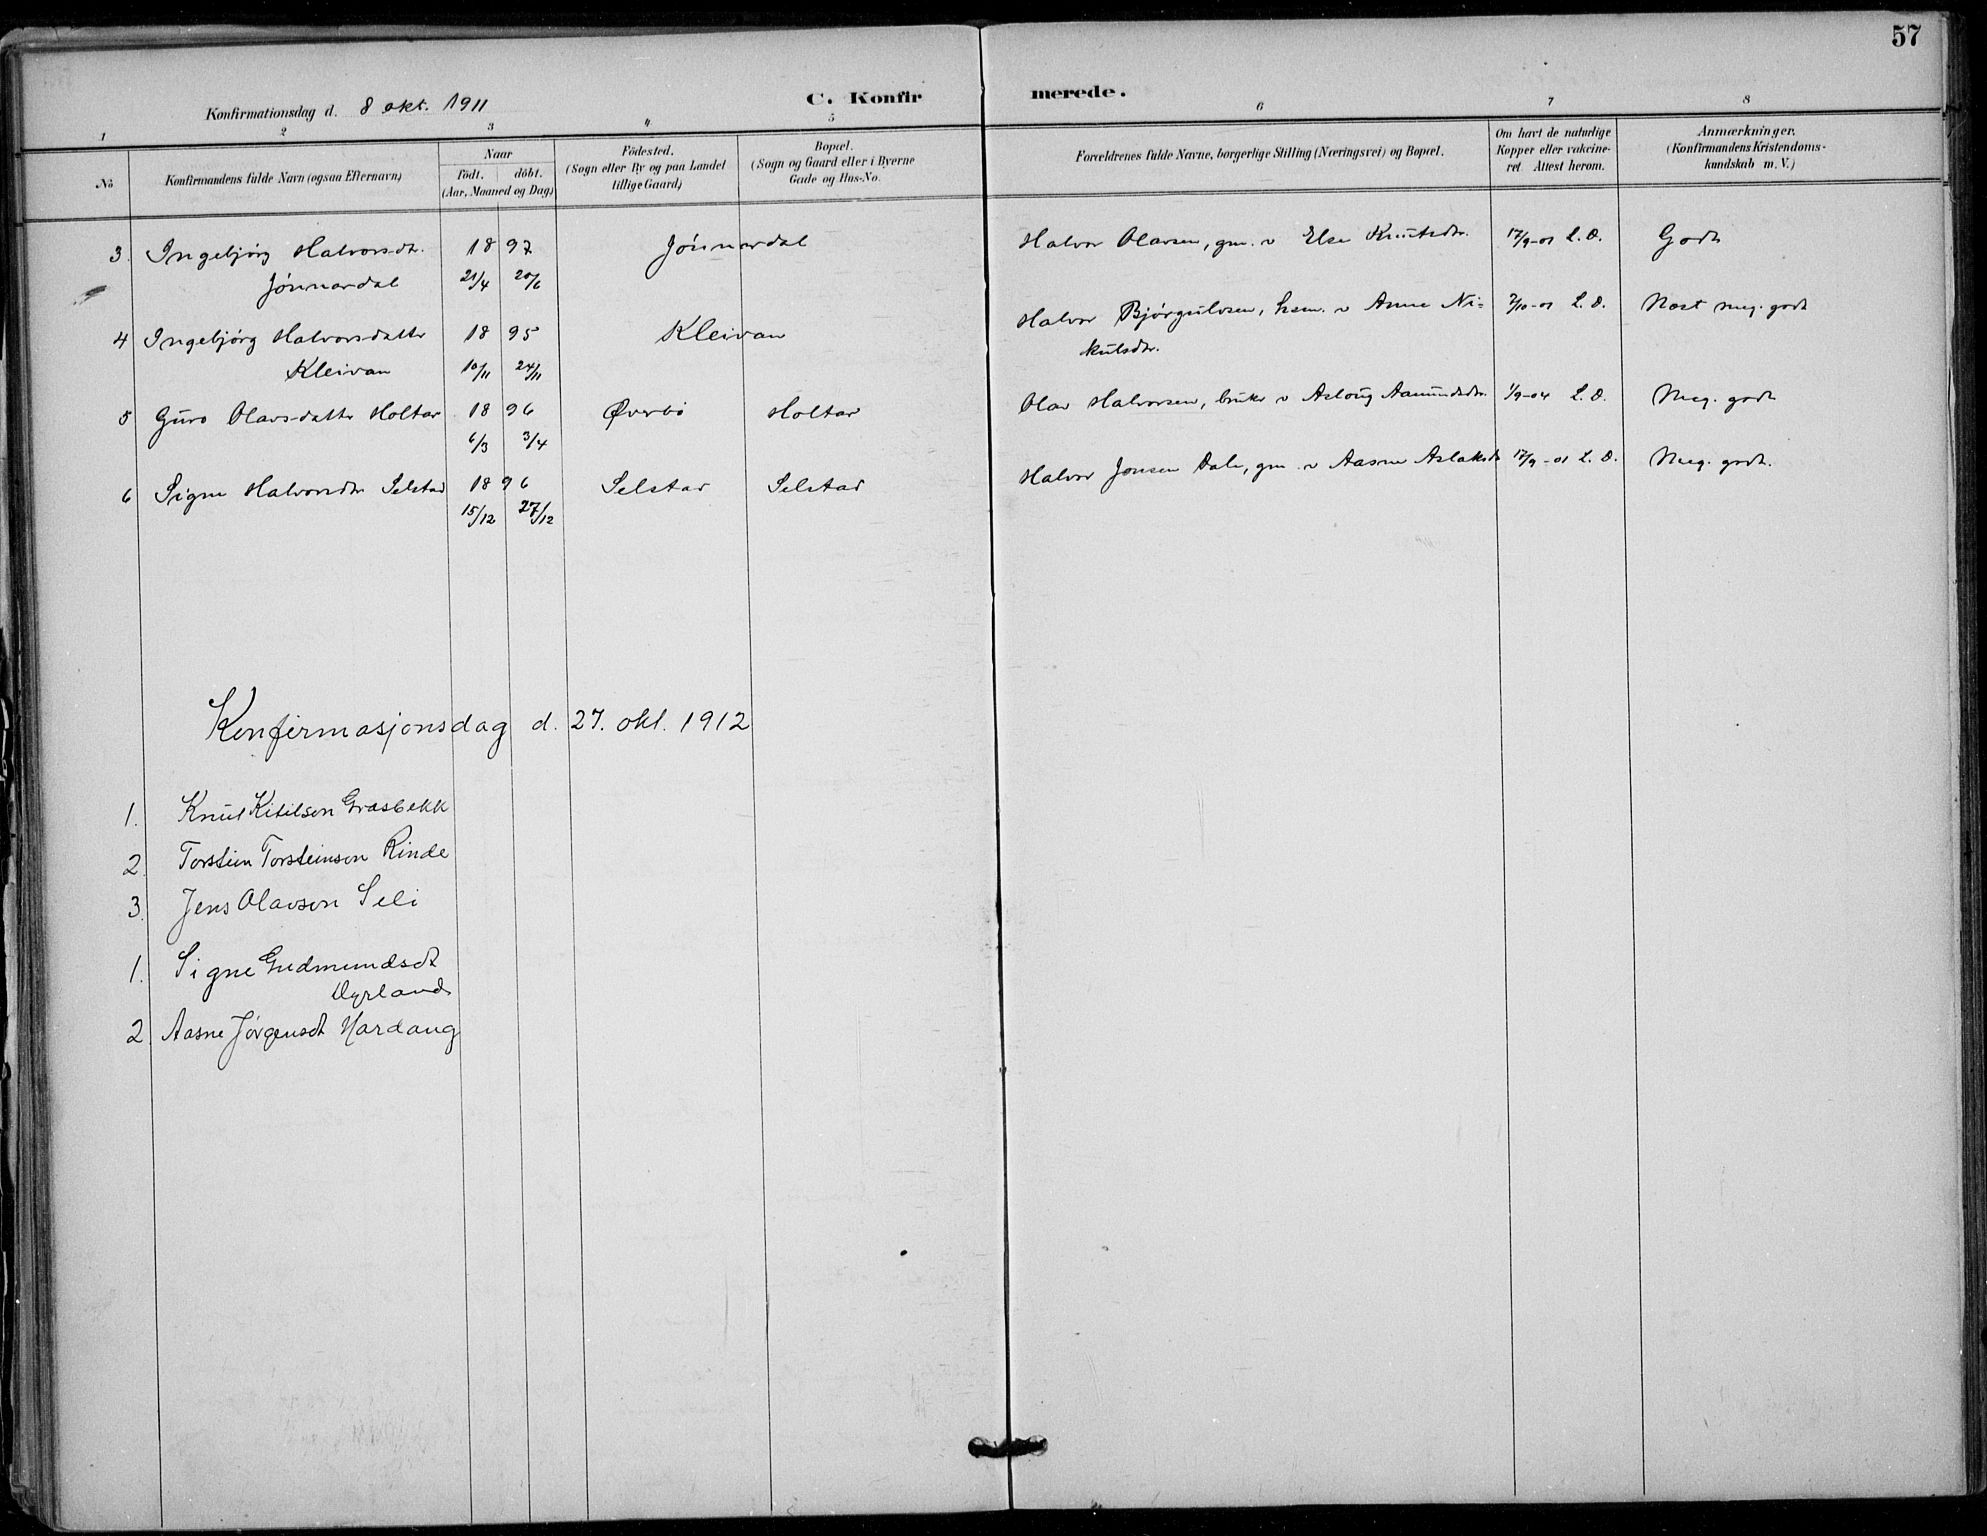 57
Konfirmationsdag d. 8 okt. 1911
C. Konfirmerede.
1 2 3 4 5 6 7 8
No
Konfirmandens fulde Navn (ogsaa Efternavn)
Naar
født. døbt.
(Aar, Maaned og Dag)
Fødested.
(Sogn eller By og paa Landet
tillige Gaard)
Bopæl.
(Sogn og Gaard eller i Byerne
Gade og Hus-No.
Forældrenes fulde Navne, borgerlige Stilling (Næringsvei) og Bopæl.
Om havt de naturlige
Kopper eller vakcine-
ret. Attest herom.
Anmærkninger.
(Konfirmandens Kristendoms-
kundskab m. V.)
3. Ingebjørg Halvorsdtr. 18 97 Jönnardal Halvor Olavsen, gm. v Else Knutsdtr. 17/9-01 L. D. Godt
Jönnardal 21/4 20/6
4 Ingebjørg Halvorsdatter 18 95 Kleivan Halvor Bjørgulvsen, hsm. v Anne Ni- 7/10-01 L. D. Næst meg. godt
Kleivan 10/11 24/11 kulsdtr.
5 Guro Olavsdatter Holtar 18 96 Øverbö Holtar Olav Halvorsen, bruker v Aslaug Aamundsdtr. 1/9-04 L. D. Meg. godt
6/3 3/4
6 Signe Halvorsdtr. Selstad 18 96 Selstad Selstad Halvor Jonsen Dale, gm. v Aasne Aslaksdtr 17/9-01 L. D. Meg. godt.
15/12 27/12
Konfirmasjonsdag d. 27. okt. 1912
1. Knut Ketilson Grasbekk
2. Torstein Torsteinson Rinde
3. Jens Olavson Seli
1. Signe Gudmundsdt
Dyrland
2 Aasne Jørgensdt Hardang